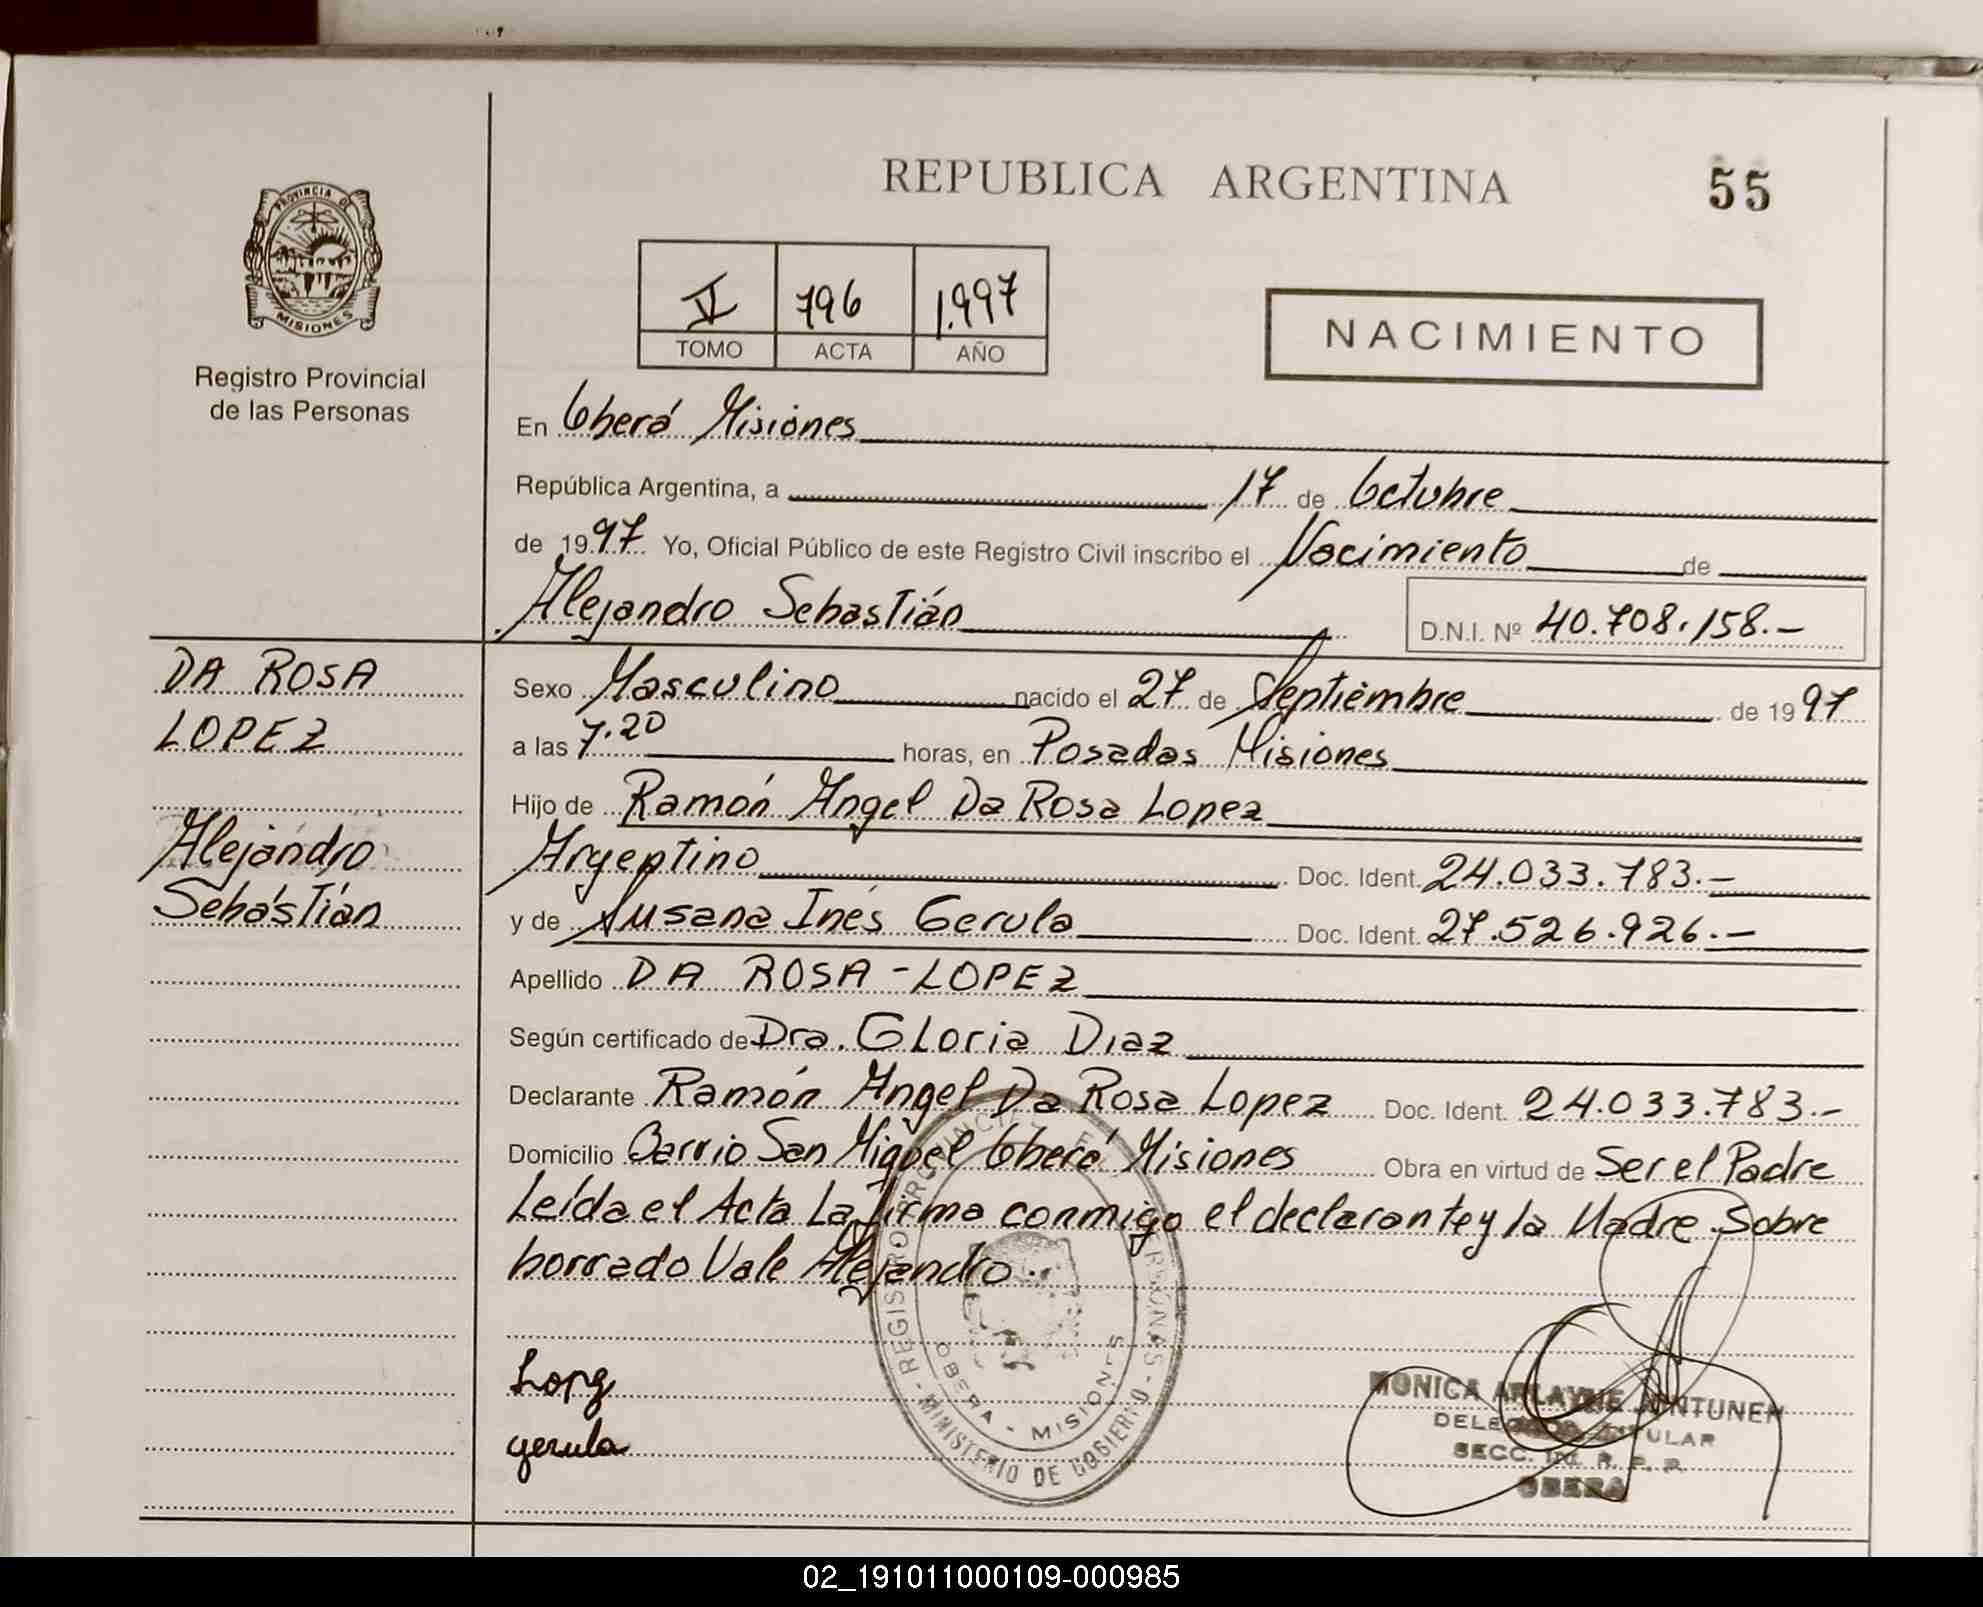 REPUBLICA ARGENTINA
55
PROVINCIA DE
MISIONES
Registro Provincial
de las Personas
V 796 1.997
TOMO ACTA AÑO
NACIMIENTO
En Oberá Misiones
República Argentina, a 17 de Octubre
de 1997 Yo, Oficial Público de este Registro Civil inscribo el Nacimiento de
Alejandro Sebastián
D.N.I. Nº 40.708.158.-
DA ROSA
LOPEZ
Alejandro
Sebástián
Sexo Masculino nacido el 27 de Septiembre de 1997
a las 7.20 horas, en Posadas Misiones
Hijo de Ramón Angel Da Rosa Lopez
Argentino Doc. Ident. 24.033.783.-
y de Susana Inés Gerula Doc. Ident. 27.526.926.-
Apellido DA ROSA-LOPEZ
Según certificado de Dra. Gloria Diaz
Declarante Ramón Angel Da Rosa Lopez Doc. Ident. 24.033.783.-
Domicilio Barrio San Miguel Oberá Misiones Obra en virtud de Ser el Padre
Leída el Acta La firma conmigo el declarante y la Madre. Sobre
borrado Vale Alejandro.
REGISTRO PROVINCIAL PERSONAS - MINISTERIO DE GOBIERNO -
OBERA - MISIONES
gerula
MONICA
TITULAR
SECC. R. P. P.
OBERA
02_191011000109-000985